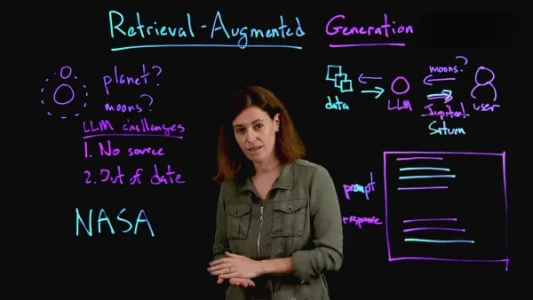 Retrieval-Augmented Generation
planet?
moons?
LLM challenges
1. No source
2. Out of date
NASA
moons?
data
LLM
user
Jupiter!
Saturn
prompt
response